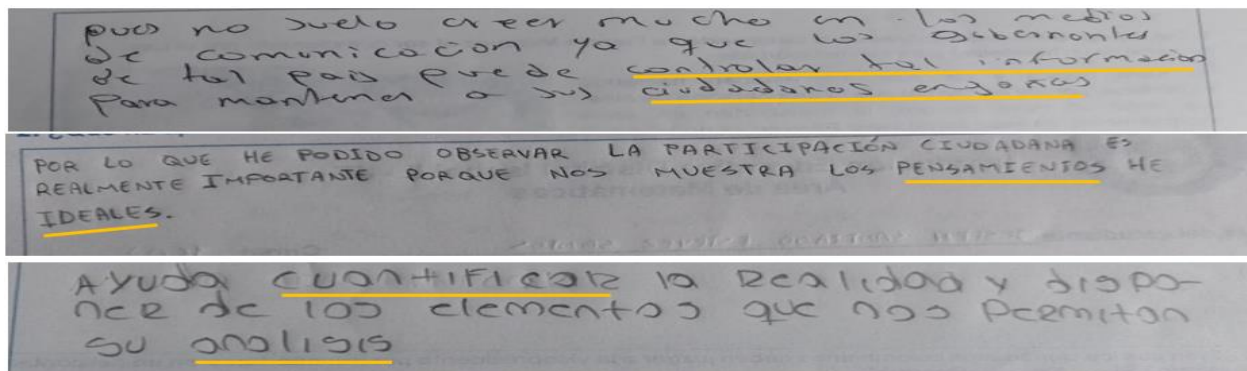 pues no suelo creer mucho en los medios
de comunicación ya que los gobernantes
de tal pais puede controlar tal informacion
para mantener a sus ciudadanos engañas
POR LO QUE HE PODIDO OBSERVAR LA PARTICIPACIÓN CIUDADANA ES
REALMENTE IMPORTANTE PORQUE NOS MUESTRA LOS PENSAMIENTOS HE
IDEALES.
AYUDA CUANTIFICAR la Realidad y dispo-
ner de los elementos que nos Permitan
su analisis